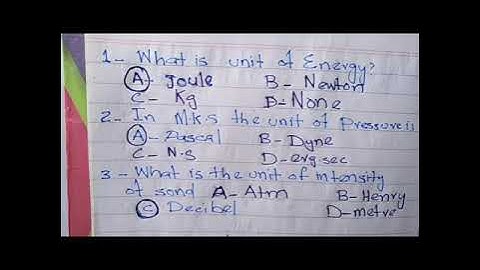 1- What is unit of Energy?
A- Joule B- Newton
C- Kg D- None
2- In Mks the unit of Pressure is
A- Pascal B- Dyne
C- N.S D- erg sec
3- What is the unit of intensity
of sond A- Atm B- Henry
C Decibel D- metre